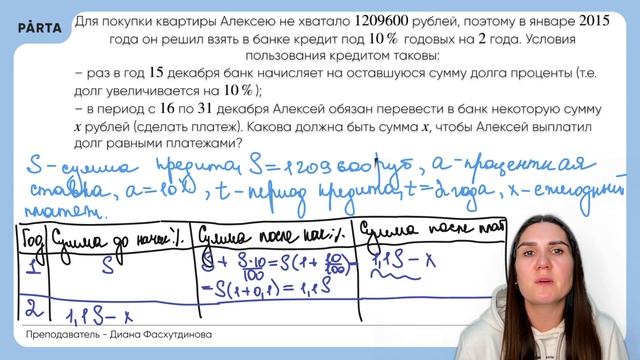 PÄRTA
Для покупки квартиры Алексею не хватало 1209600 рублей, поэтому в январе 2015
года он решил взять в банке кредит под 10 % годовых на 2 года. Условия
пользования кредитом таковы:
– раз в год 15 декабря банк начисляет на оставшуюся сумму долга проценты (т.е.
долг увеличивается на 10 % );
– в период с 16 по 31 декабря Алексей обязан перевести в банк некоторую сумму
x рублей (сделать платеж). Какова должна быть сумма x, чтобы Алексей выплатил
долг равными платежами?
S – сумма кредита, S = 1209600 руб, a – процентная
ставка, a = 10%, t – период кредита, t = 2 года, x – ежегодный
платеж.
Год Сумма до начис. % Сумма после нач. % Сумма после плат
1 S S + S·10/100 = S(1 + 10/100) = 1,1S – x
= S(1 + 0,1) = 1,1S
2 1,1S – x
Преподаватель - Диана Фасхутдинова